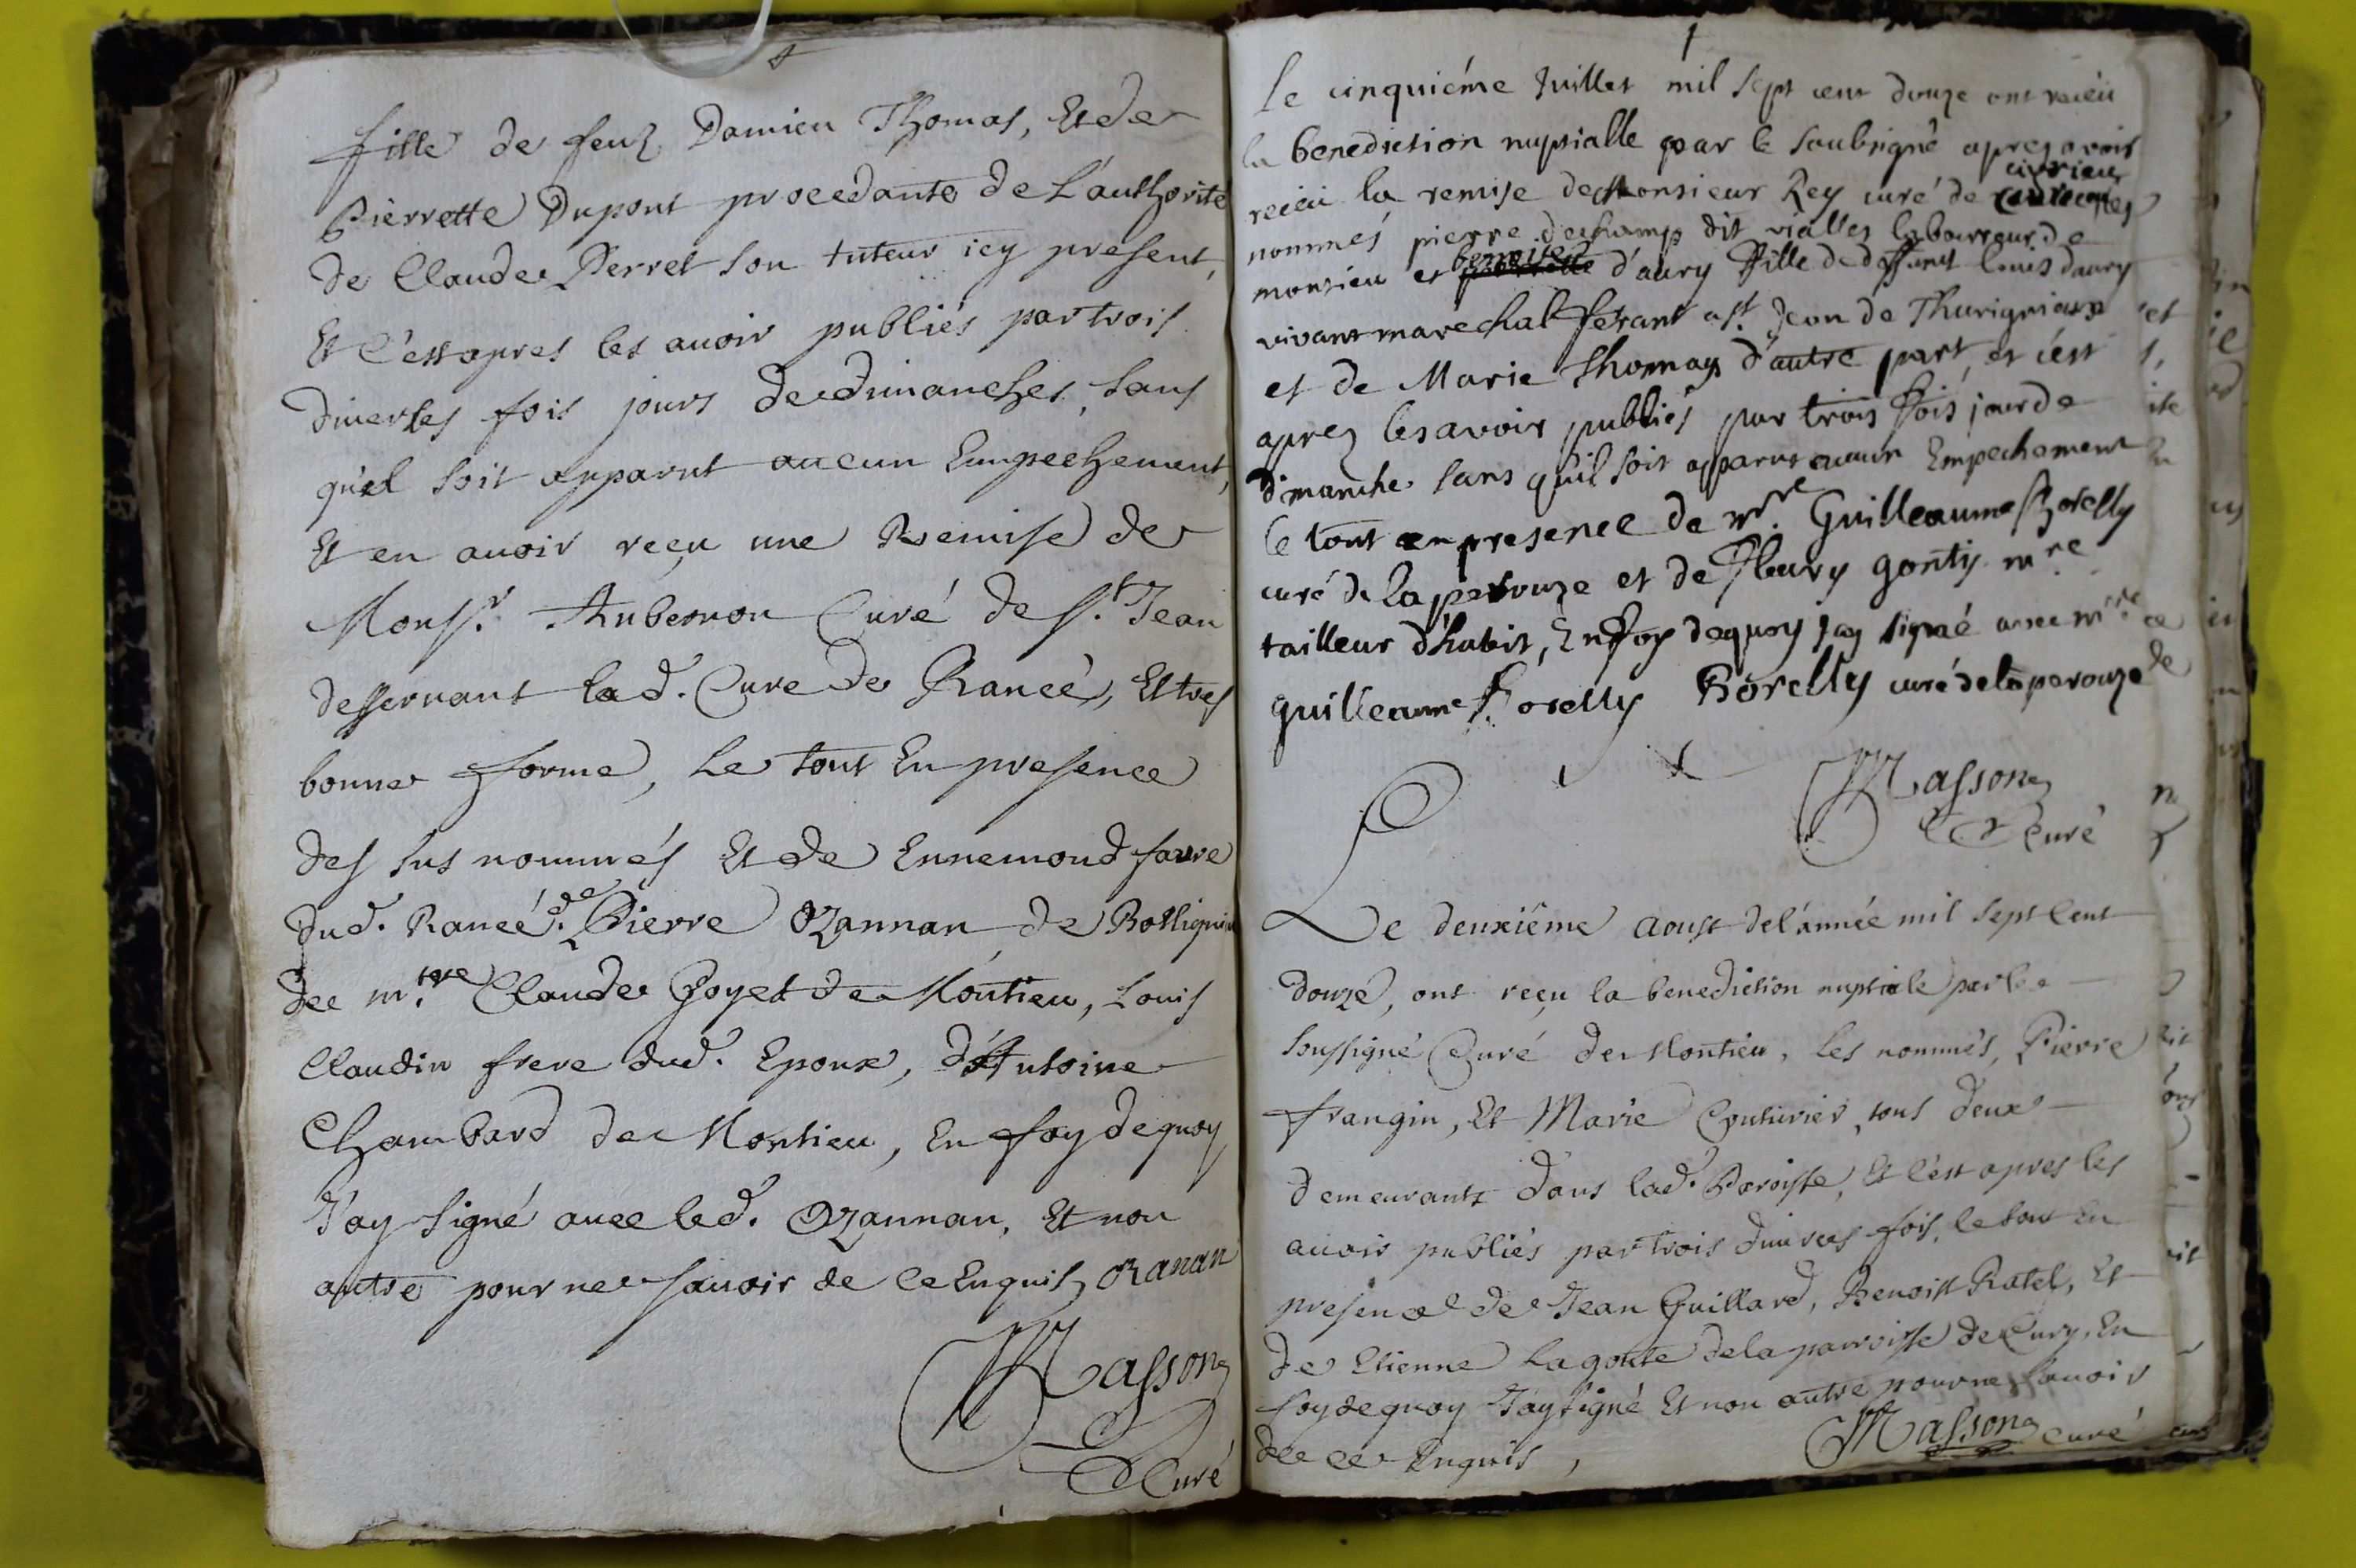 fille de feuz Damien Thomas, Et de
Pierrette Dupont procedante de L'authorité
de Claude Perret son tuteur icy present,
Et C'est apres les avoir publiés par trois
diverses fois jours de dimanches, sans
qu'il soit apparut aucun Empechement,
Et en avoir reçu une Remise de
Monsr. Aubernon Curé de St. Jean
desservant lad. Cure de Rancé, Et tres
bonne forme, Le tout En presence
des sus nommés Et de Ennemond favre
dud. Rancé. de Pierre Ozannan de
de mtre Claude Goyet de Montieu, Louis
Claudin frere dud. Epoux, d'Antoine
Chambard de Montieu, En foy de quoy
J'ay signé avec led. Ozannan, Et non
autre pour ne savoir de ce Enquis, Ozanan
Masson
Curé
le cinquiéme Juillet mil sept cent douze ont receu
la benediction nuptialle par le soubsigné aprez avoir
civrieu
receu la remise de Monsieur Rey curé de
nommés pierre deschamp dit vialles laboureur de
benoite
monsieu et d'aury fille de deffunt louis daury
vivant marechal ferant a st. Jean de Thurignieux
et de Marie Thomas d'autre part, et c'est
aprez les avoir publiés par trois fois jour de
dimanche sans qu'il soit apparut aucun Empechement
le tout en presence de mre. Guilleaume Borelly
curé de la perouze et de fleury gontys mre
tailleur d'habit, En foy de quoy jay signé avec mre
guilleaume Borelly Borelly curé de la perouze
Masson
Curé
Le deuxiême aoust de l'année mil sept Cent
douze, ont reçu la benediction nuptiale par le
soussigné Curé de Montieu, les nommés, Pierre
frangin, Et Marie Couturier, tous deux
demeurants dans lad. Paroisse, Et C'est apres les
avoir publiés par trois diverses fois, le tout En
presence de Jean Guillard, Benoist Ratel, Et
de Etienne Lagoute de la parroisse de Cury, En
foy de quoy J'ay signé Et non autre pour ne savoir
de ce Enquis,
Masson curé